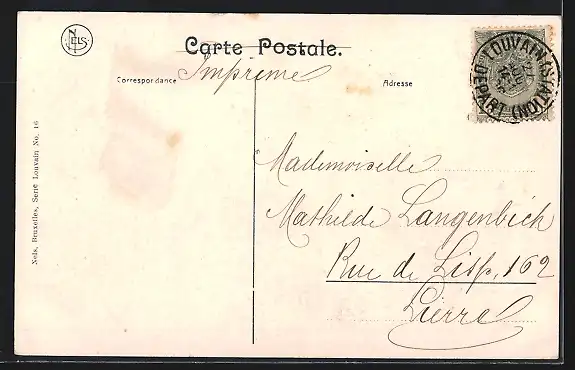 NELS
Carte Postale.
Imprimé
Correspondance
Adresse
LOUVAIN (STATION)
DEPART
Mademoiselle
Mathilde Langenbich
Rue de Lisp, 162
Lierre
Nels, Bruxelles, Serie Louvain No. 16